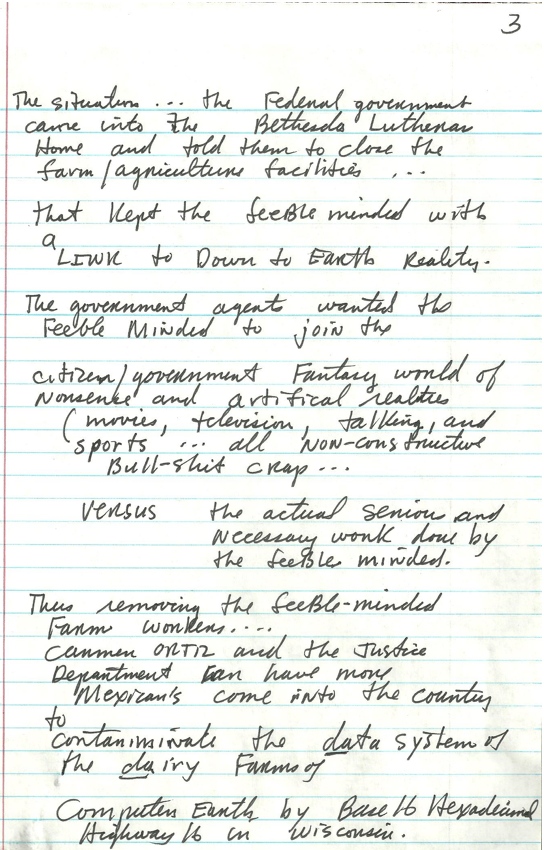 3
The situation ... the Federal government
came into the Bethesda Lutheran
Home and told them to close the
farm/agriculture facilities ...
that kept the feeBle minded with
a
LINK to Down to Earth Reality.
The government agents wanted the
Feeble Minded to join the
citizen/government Fantasy world of
Nonsense and artifical realties
(movies, television, talking, and
sports ... all NON-constructive
Bull-shit crap ...
Versus the actual serious and
necessary work done by
the feeBle minded.
Thus removing the feeBle-minded
Farm workers....
Carmen ORTIZ and the Justice
Department can have more
Mexican's come into the country
to
contaminate the data system of
the dairy Farms of
Computer Earth by Base 16 Hexadecimal
Highway 16 in Wisconsin.